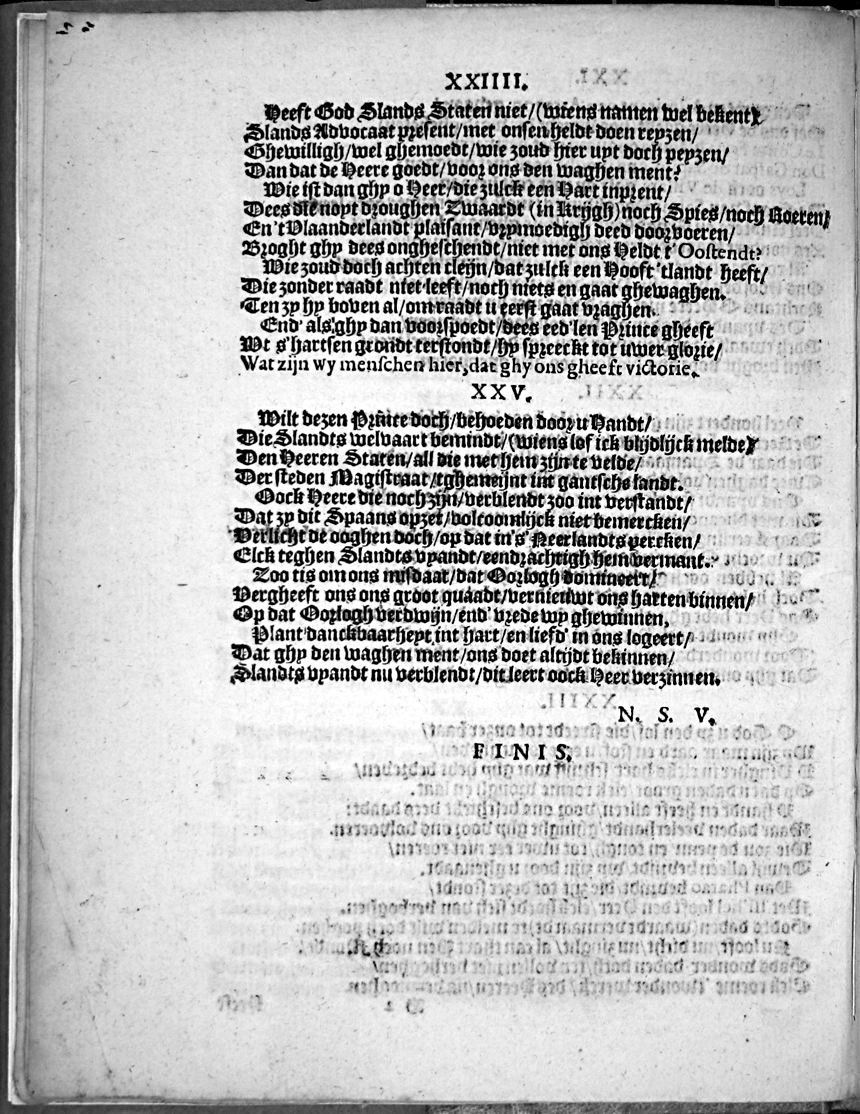 XXIIII.
Heeft God Slands Staten niet/(wiens namen wel bekent)
Slands Advocaat present/met onsen heldt doen reyzen/
Ghewilligh/wel ghemoedt/wie zoud hier uyt doch peyzen/
Dan dat de Heere goedt/voor ons den waghen ment?
Wie ist dan ghy o Heer/die zulck een Hart inprent/
Dees die noyt droughen Zwaardt (in Krijgh) noch Spies/noch Roeren/
En't Vlaanderlandt plaisant/vrymoedigh deed doorvoeren/
Broght ghy dees ongheschendt/niet met ons Heldt t'Oostendt?
Wie zoud doch achten cleijn/dat zulck een Hooft 'tlandt heeft/
Die zonder raadt niet leeft/noch niets en gaat ghewaghen.
Ten zy hy boven al/om raadt u eerst gaat vraghen.
End' als ghy dan voorspoedt/dees eed'len Prince gheeft
Wt s'hartsen grondt terstondt/hy spreeckt tot uwer glorie/
Wat zijn wy menschen hier, dat ghy ons gheeft victorie.
XXV.
Wilt dezen Prince doch/behoeden door u Handt/
Die Slandts welvaart bemindt/(wiens lof ick blijdlijck melde)
Den Heeren Staten/all die met hem zijn te velde/
Der steden Magistraat/tghemeijnt int gantsche landt.
Oock Heere die noch zijn/verblendt zoo int verstandt/
Dat zy dit Spaans opzet/volcoomlijck niet bemercken/
Verlicht de ooghen doch/op dat in's Neerlandts percken/
Elck teghen Slandts vyandt/eendrachtigh hem vermant.
Zoo tis om ons misdaat/dat Oorlogh domineert/
Vergheeft ons ons groot quaadt/vernieuwt ons harten binnen/
Op dat Oorlogh verdwijn/end' vrede wy ghewinnen,
Plant danckbaarheyt int hart/en liefd' in ons logeert/
Dat ghy den waghen ment/ons doet altijdt bekinnen/
Slandts vyandt nu verblendt/dit leert oock Heer verzinnen.
N. S. V.
FINIS.